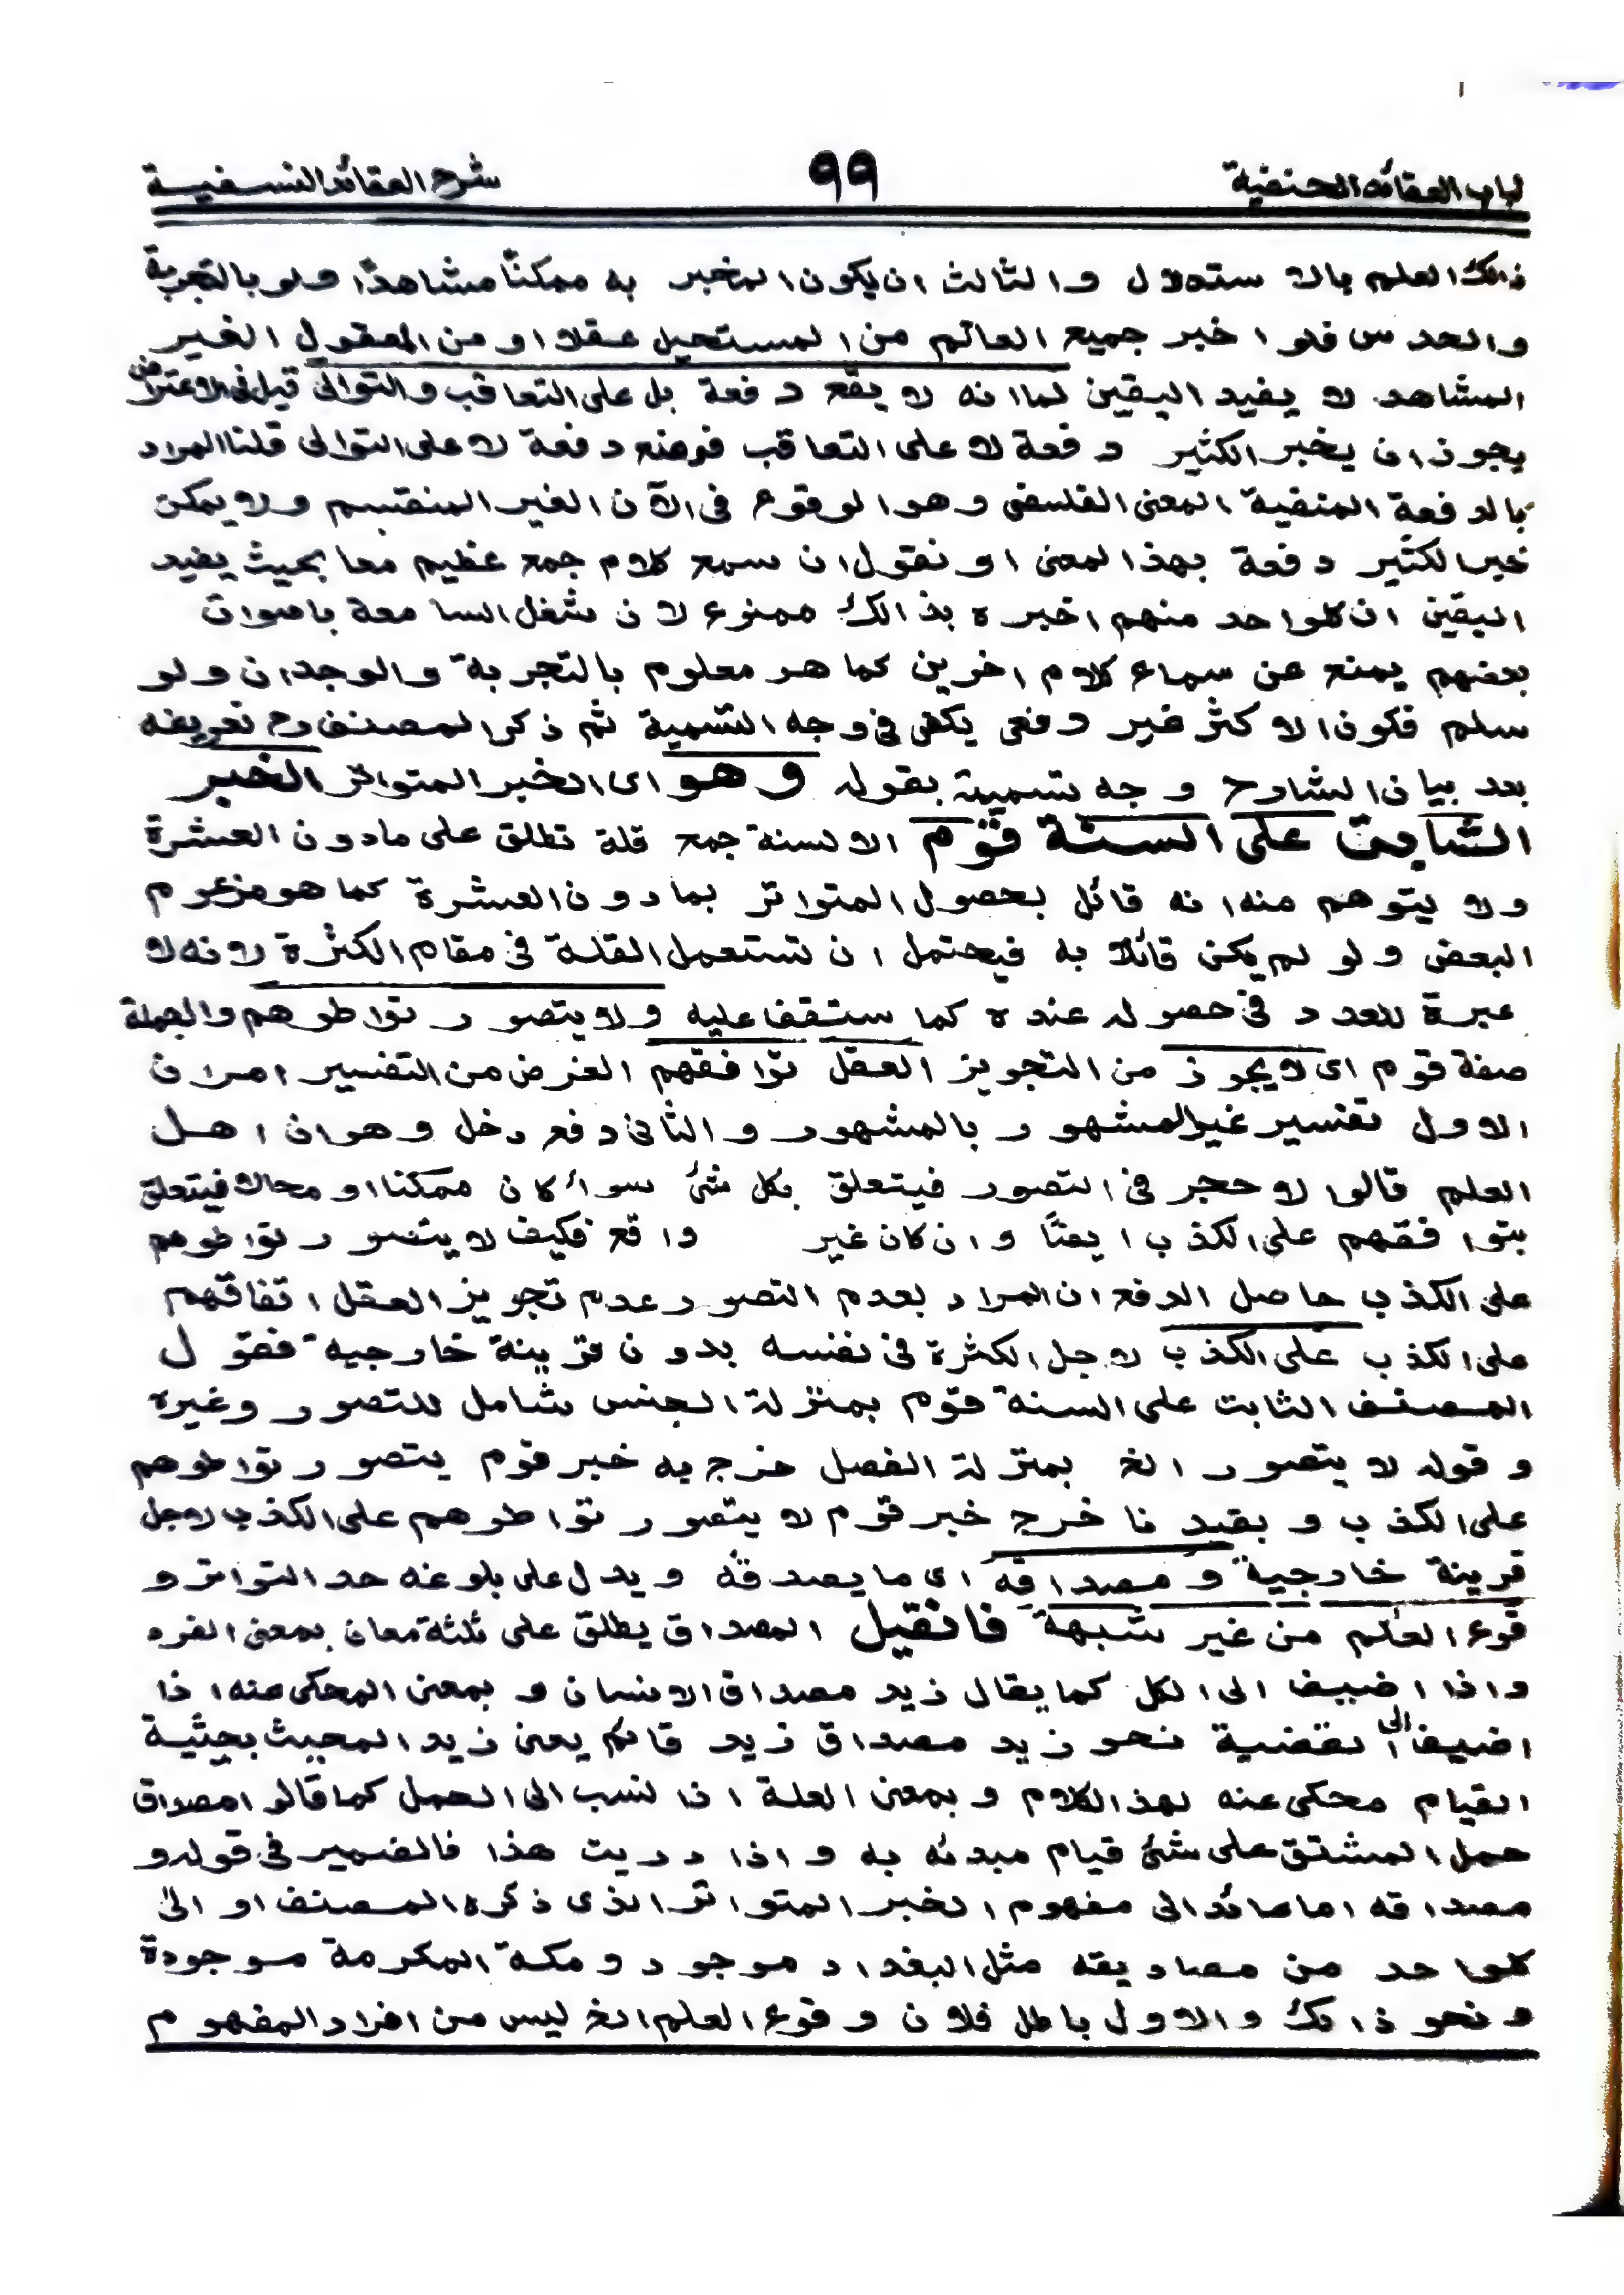 لباب العقائد الحنفية ٩٩ شرح العقائد النسفية
ذالك العلم بالاستدلال والثالث ان يكون المخبر به ممكناً مشاهداً ولو بالتجربة
والحدس فلو اخبر جميع العالم من المستحيل عقلا او من المعقول الغير
المشاهد لا يفيد اليقين لما انه لا يقع دفعة بل على التعاقب والتوالى قيل فى الاعتراض
يجوز ان يخبر الكثير دفعة لا على التعاقب فوضع دفعة لا على التوالى قلنا المراد
بالدفعة المنفية المعنى الفلسفى وهو الوقوع فى الآن الغير المنقسم ولا يمكن
خبر الكثير دفعة بهذا المعنى او نقول ان سمع كلام جمع عظيم معا بحيث يفيد
اليقين ان كلواحد منهم اخبره بذالك ممنوع لان شغل السامعة باصوات
بعضهم يمنع عن سماع كلام اخرين كما هو معلوم بالتجربة والوجدان ولو
سلم فكون الاكثر غير دفعى يكفى فى وجه التسمية ثم ذكر المصنف رح تعريفه
بعد بيان الشارح وجه تسميته بقوله وهو اى الخبر المتواتر الخبر
الثابت على السنة قوم الالسنة جمع قلة تطلق على مادون العشرة
ولا يتوهم منه انه قائل بحصول المتواتر بما دون العشرة كما هو مزعوم
البعض ولو لم يكن قائلا به فيحتمل ان تستعمل القلة فى مقام الكثرة لانه لا
عبرة للعدد فى حصوله عنده كما ستقف عليه ولا يتصور تواطوهم والجملة
صفة قوم اى لا يجوز من التجويز العقل توافقهم الغرض من التفسير امران
الاول تفسير غير المشهور بالمشهور والثانى دفع دخل وهو ان اهل
العلم قالوا لا حجر فى التصور فيتعلق بكل شئ سواء كان ممكنا او محالا فيتعلق
بتوافقهم على الكذب ايضًا وان كان غير واقع فكيف لا يتصور تواطوهم
على الكذب حاصل الدفع ان المراد بعدم التصور عدم تجويز العقل اتفاقهم
على الكذب على الكذب لاجل الكثرة فى نفسه بدون قرينة خارجية فقول
المصنف الثابت على السنة قوم بمنزلة الجنس شامل للتصور وغيره
و قوله لا يتصور الخ بمنزلة الفصل خرج به خبر قوم يتصور تواطوهم
على الكذب و بقيد نا خرج خبر قوم لا يتصور تواطوهم على الكذب لاجل
قرينة خارجية و مصداقه اى ما يصدقه ويدل على بلوغه حد التواتر و
قوع العلم من غير شبهة فانقيل المصداق يطلق على ثلثة معان بمعنى الفرد
واذا اضيف الى الكل كما يقال زيد مصداق الانسان و بمعنى المحكى عنه اذا
اضيف الى القضية نحو زيد مصداق زيد قائم يعنى زيد المحيث بحيثية
القيام محكى عنه لهذا الكلام و بمعنى العلة اذا نسب الى الحمل كما قالو امصداق
حمل المشتق على شئ قيام مبدئه به واذا دريت هذا فالضمير فى قوله و
مصداقه اما عائد الى مفهوم الخبر المتواتر الذى ذكره المصنف او الى
كلواحد من مصاديقه مثل البغداد موجود و مكة المكرمة موجودة
و نحو ذالك والاول باطل فلان وقوع العلم الخ ليس من افراد المفهوم